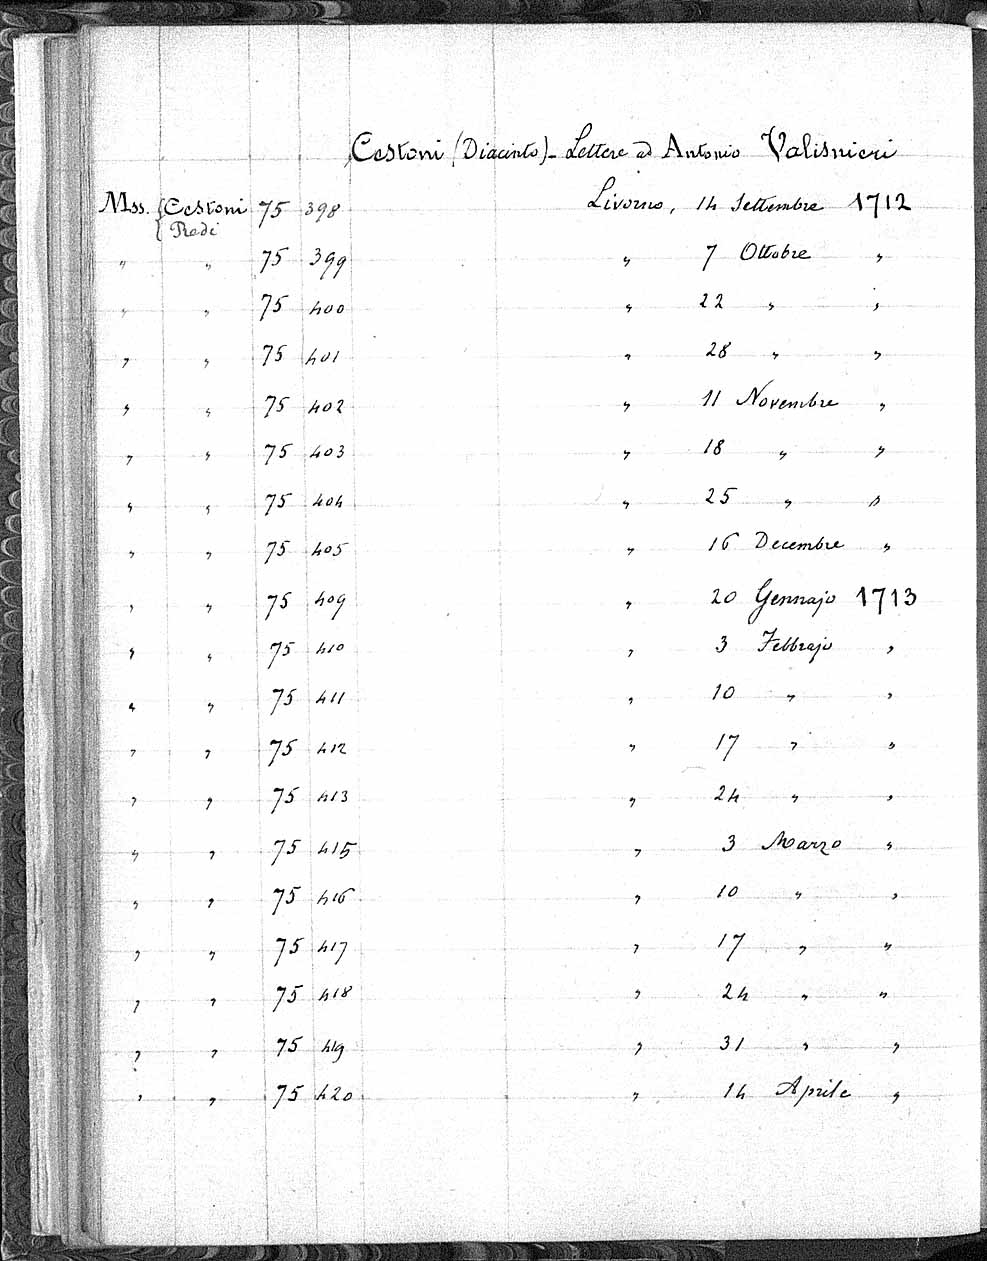 Cestoni (Diacinto) - Lettere ad Antonio Valisnieri
Mss. { Cestoni 75 398 Livorno, 14 Settembre 1712
{ Redi
" " 75 399 " 7 Ottobre "
" " 75 400 " 22 " "
" " 75 401 " 28 " "
" " 75 402 " 11 Novembre "
" " 75 403 " 18 " "
" " 75 404 " 25 " "
" " 75 405 " 16 Decembre "
" " 75 409 " 20 Gennajo 1713
" " 75 410 " 3 Febbrajo "
" " 75 411 " 10 " "
" " 75 412 " 17 " "
" " 75 413 " 24 " "
" " 75 415 " 3 Marzo "
" " 75 416 " 10 " "
" " 75 417 " 17 " "
" " 75 418 " 24 " "
" " 75 419 " 31 " "
" " 75 420 " 14 Aprile "